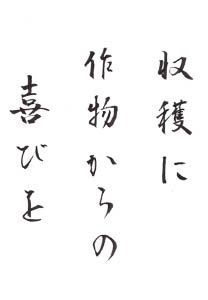 収穫に
作物からの
喜びを